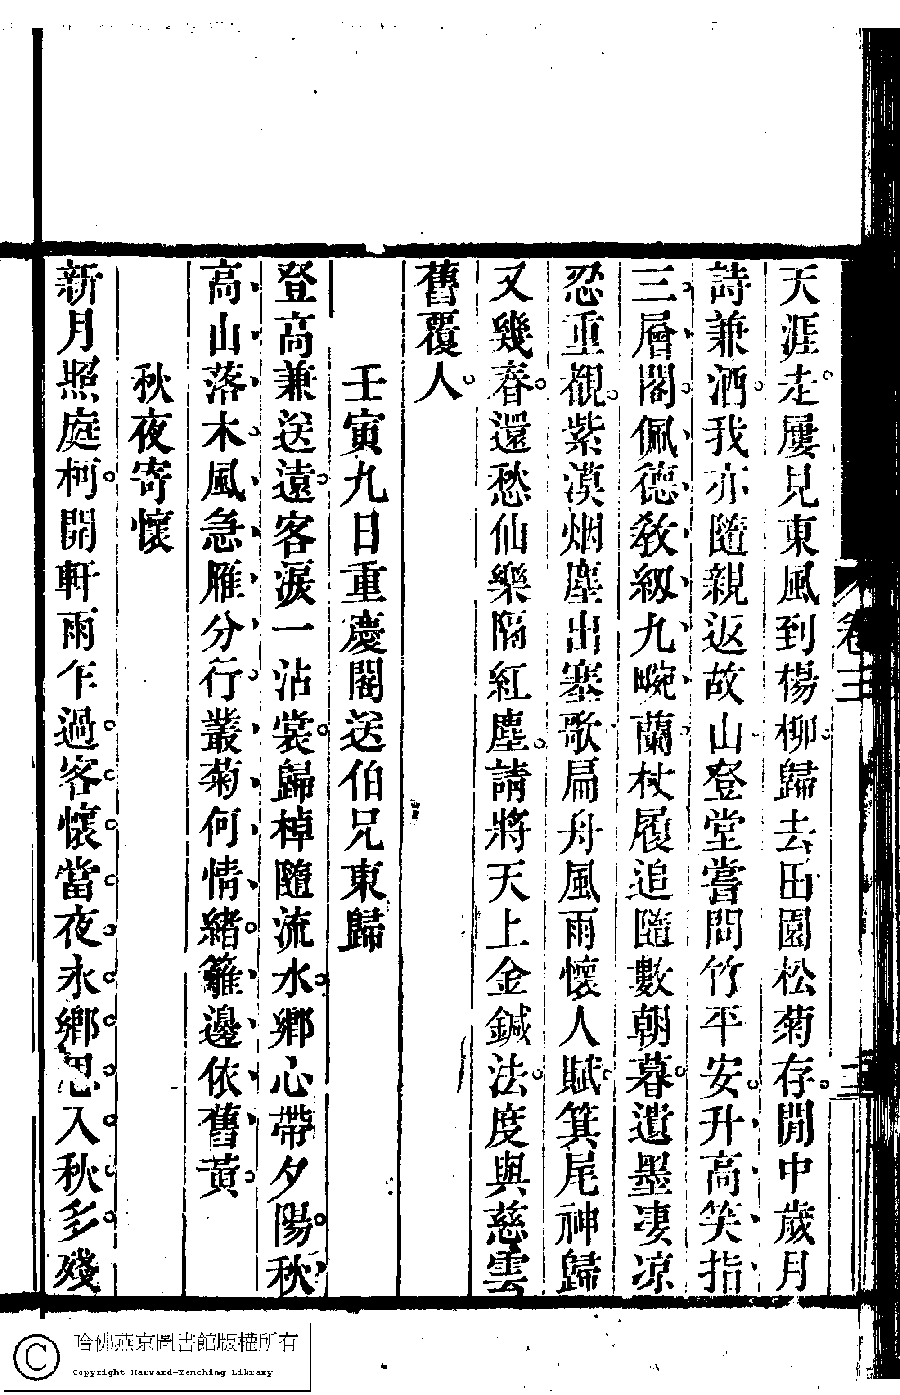 天涯走屢見東風到楊柳歸去田園松菊存閒中歲月
詩兼酒我亦隨親返故山登堂嘗問竹平安升高笑指
三層閣佩德敎紉九畹蘭杖履追隨數朝暮遺墨凄凉
忍重觀紫漠烟塵出塞歌扁舟風雨懷人賦箕尾神歸
又幾春還愁仙樂隔紅塵請將天上金鍼法度與慈雲
舊覆人
壬寅九日重慶閣送伯兄東歸
登高兼送遠客淚一沾裳歸棹隨流水鄉心帶夕陽秋
高山落木風急雁分行叢菊何情緒籬邊依舊黃
秋夜寄懷
新月照庭柯開軒雨乍過客懷當夜永鄉思入秋多殘
卷三
哈佛燕京圖書館版權所有
Copyright Harvard-Yenching Library